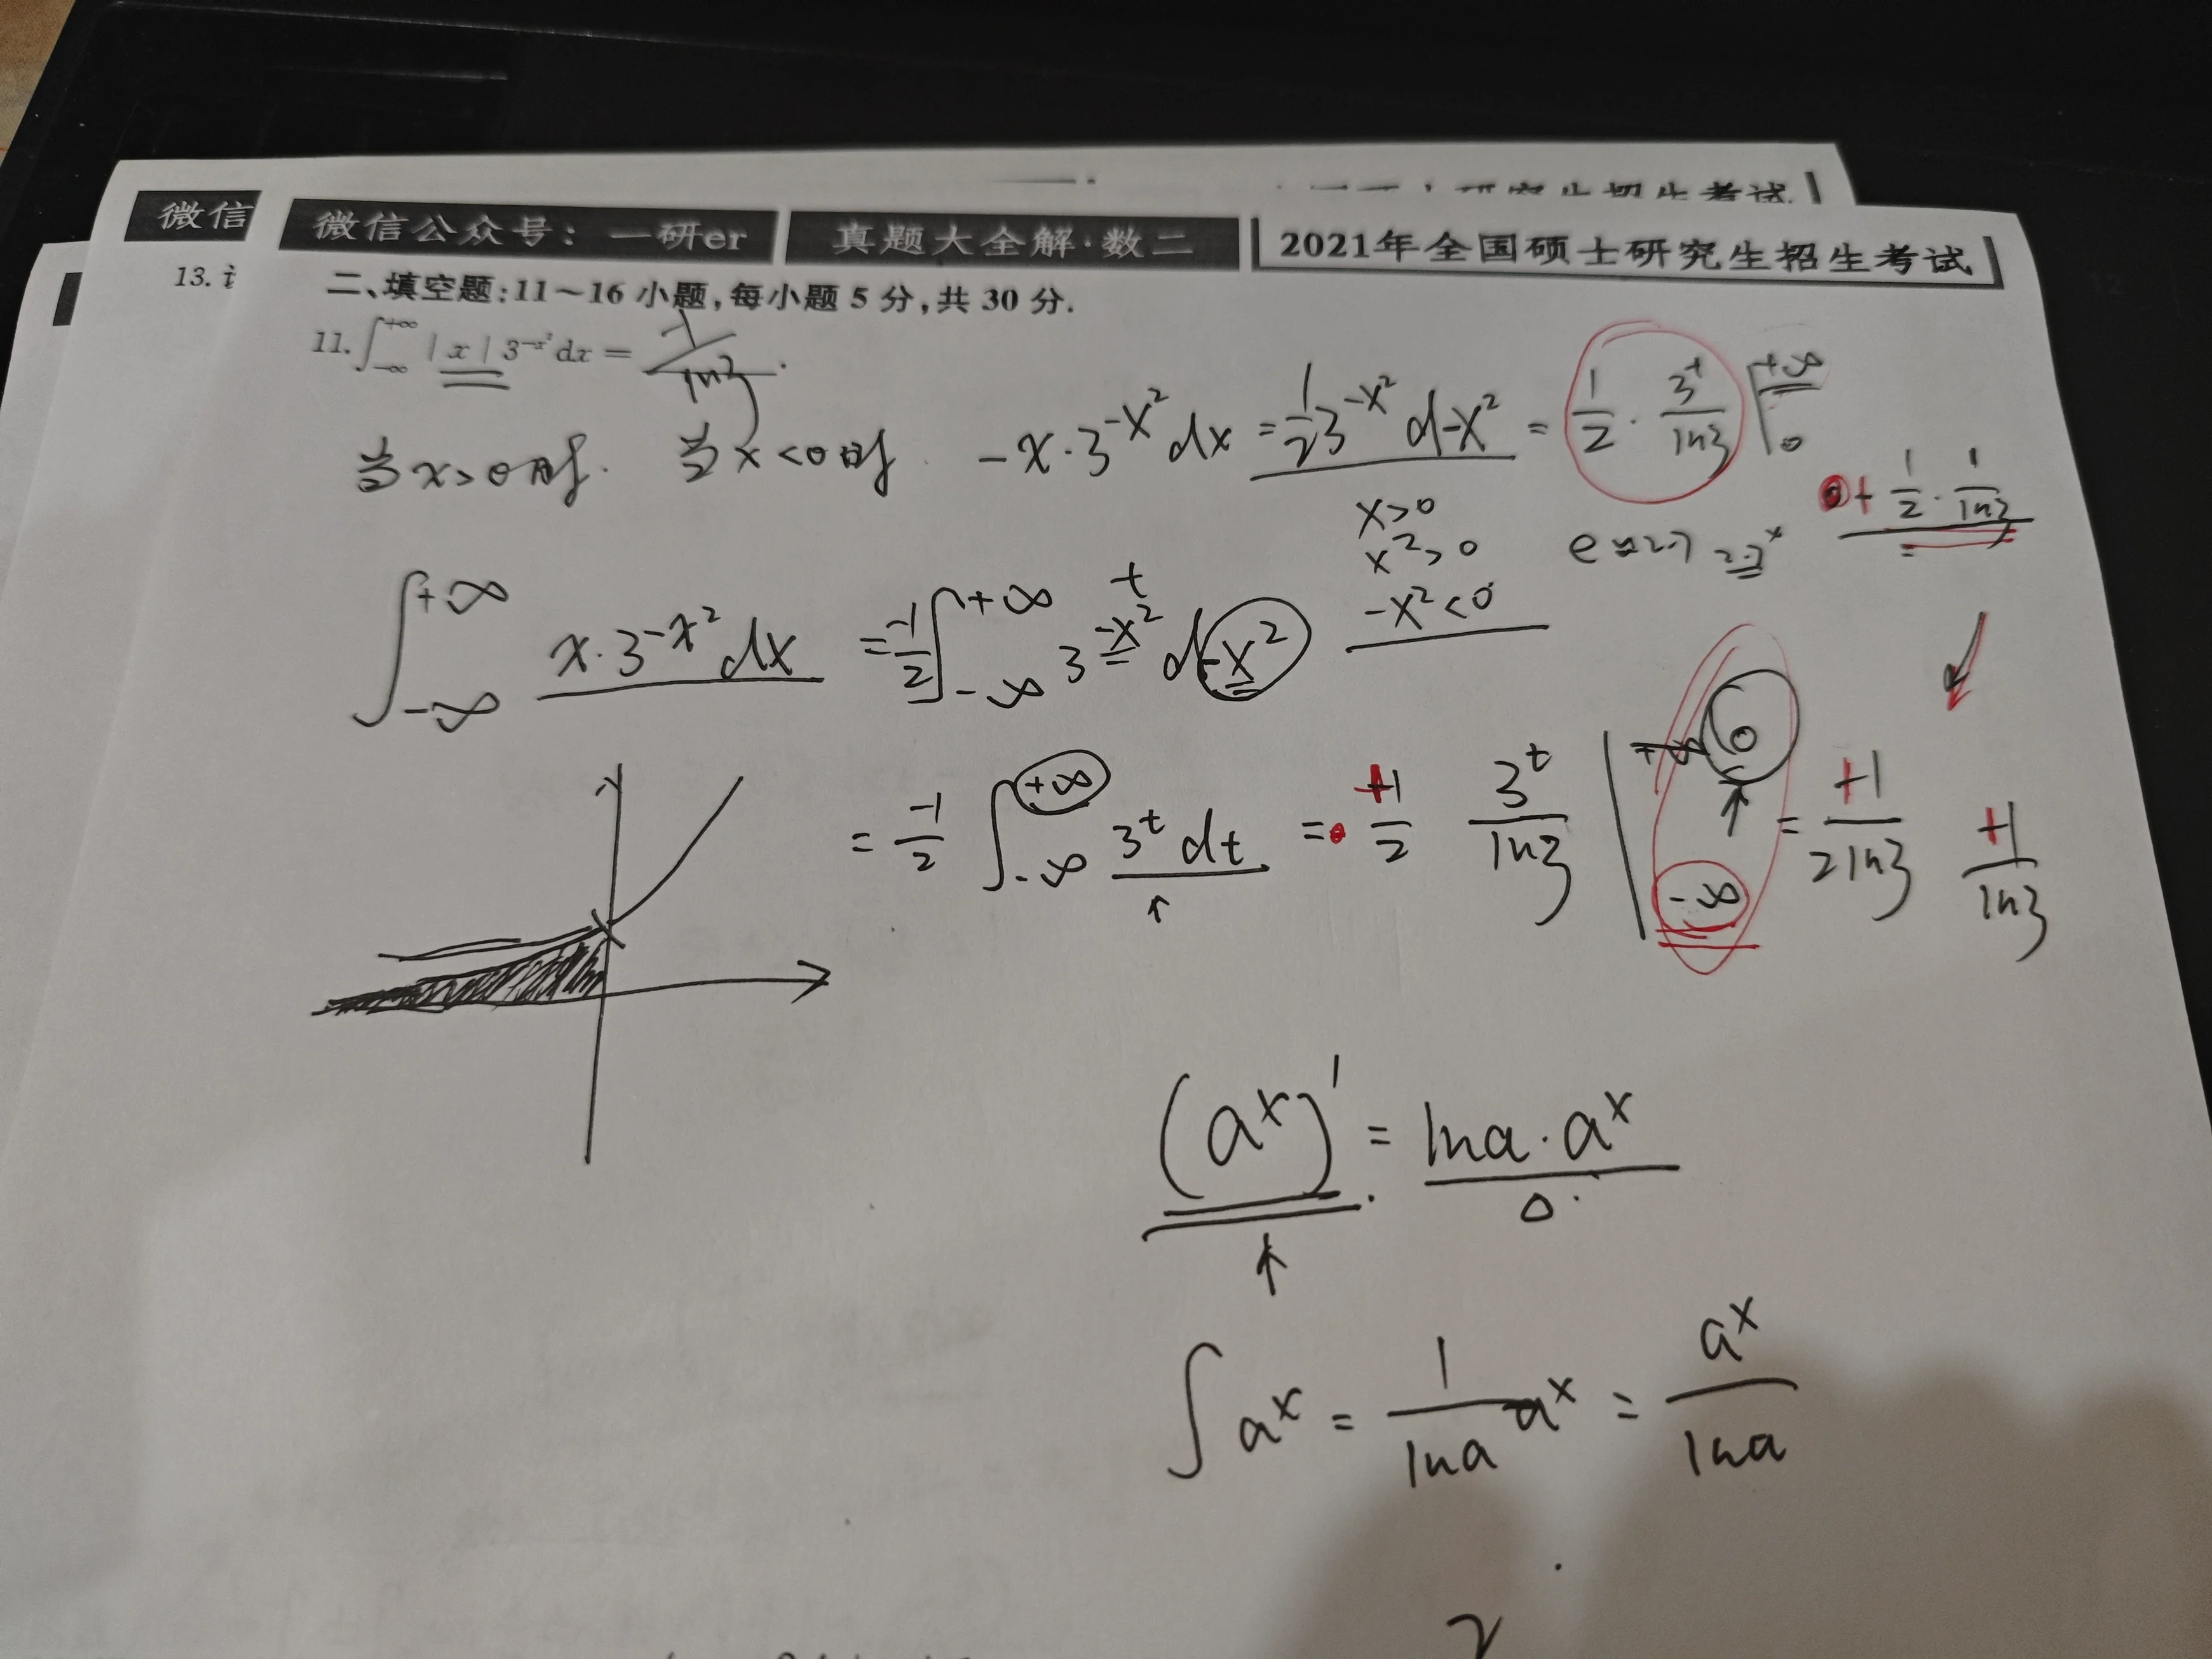 微信
微信公众号：一研er 真题大全解·数二 2021年全国硕士研究生招生考试
13.
二、填空题：11～16 小题，每小题 5 分，共 30 分.
11. ∫_{-∞}^{+∞} |x| 3^{-x²} dx = 1/ln3 .
当x>0时. 当x<0时 -x·3^{-x²} dx = 1/2 3^{-x²} d-x² = 1/2 · 3^t/ln3 |_0^{+∞}
+ 1/2 · 1/ln3
x>0
x²>0
-x²<0
e≈2.7 2.7^x
∫_{-∞}^{+∞} x·3^{-x²} dx = -1/2 ∫_{-∞}^{+∞} 3^{-x²} d-x²
t
= -1/2 ∫_{-∞}^{+∞} 3^t dt = +1/2 3^t/ln3 |_{-∞}^{+∞ 0} = +1/2ln3 +1/ln3
(a^x)' = lna·a^x
∫a^x = 1/lna a^x = a^x/lna